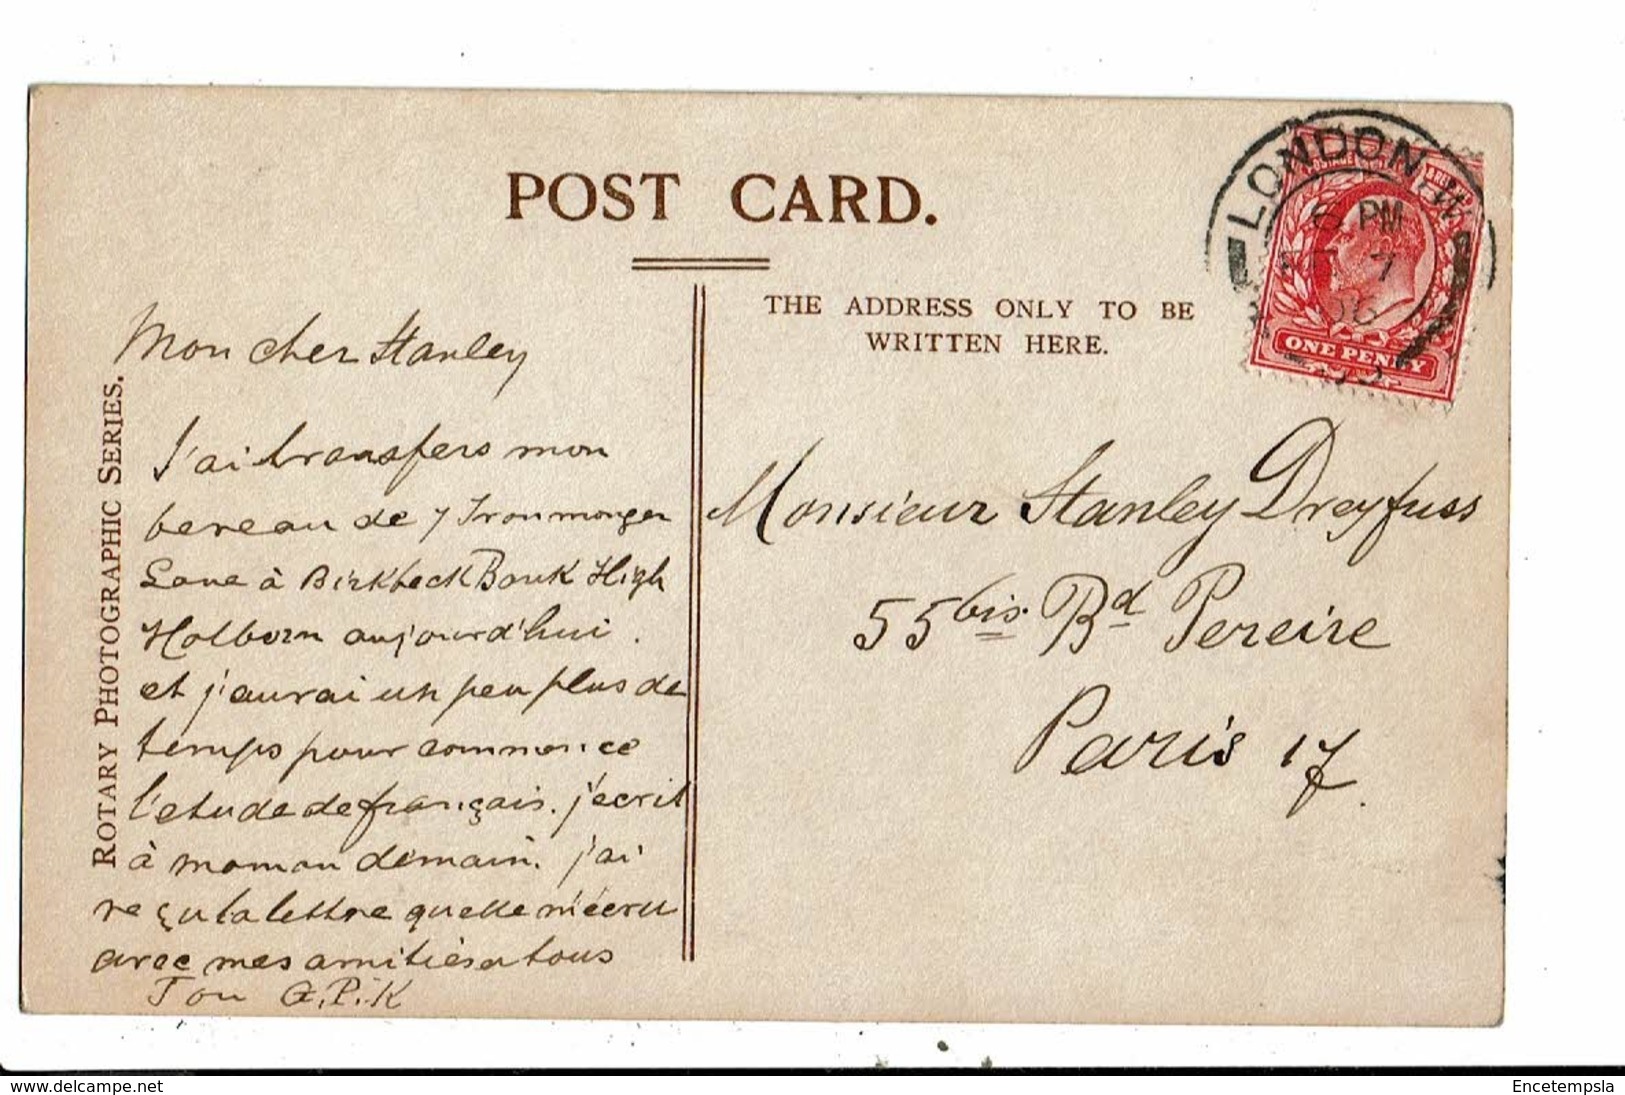 POST CARD.
THE ADDRESS ONLY TO BE
WRITTEN HERE.
ROTARY PHOTOGRAPHIC SERIES.
LONDON. W
6 PM
7
06
ONE PENNY
Mon cher Stanley
J'ai transfers mon
bereau de 7 Ironmonger
Lane à Birkbeck Bank High
Holborn aujourd'hui.
et j'aurai un peu plus de
temps pour commence
l'etude de français. j'ecrit
à maman demain. j'ai
reçu la lettre quelle m'écru
avec mes amitiés a tous
Ton G.P.K
Monsieur Stanley Dreyfuss
55bis Bd Pereire
Paris 17
www.delcampe.net
Encetempsla